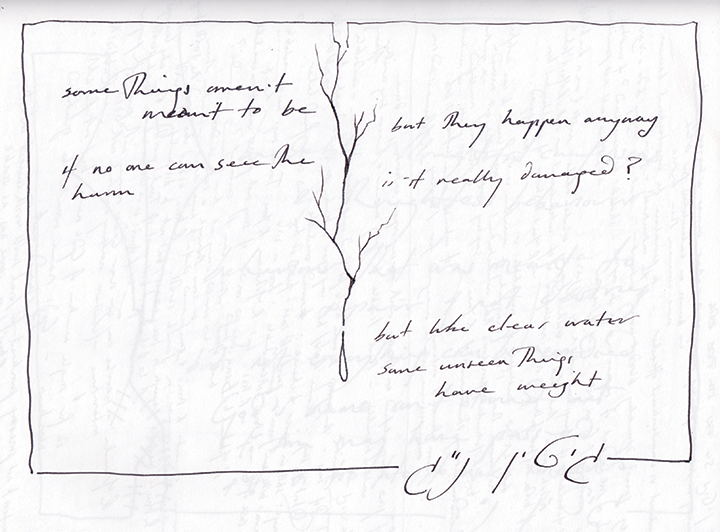 some Things aren't
meant to be
but They happen anyway
if no one can see The
harm
is it really damaged?
but like clear water
some unseen Things
have weight
גיטין נ"ג